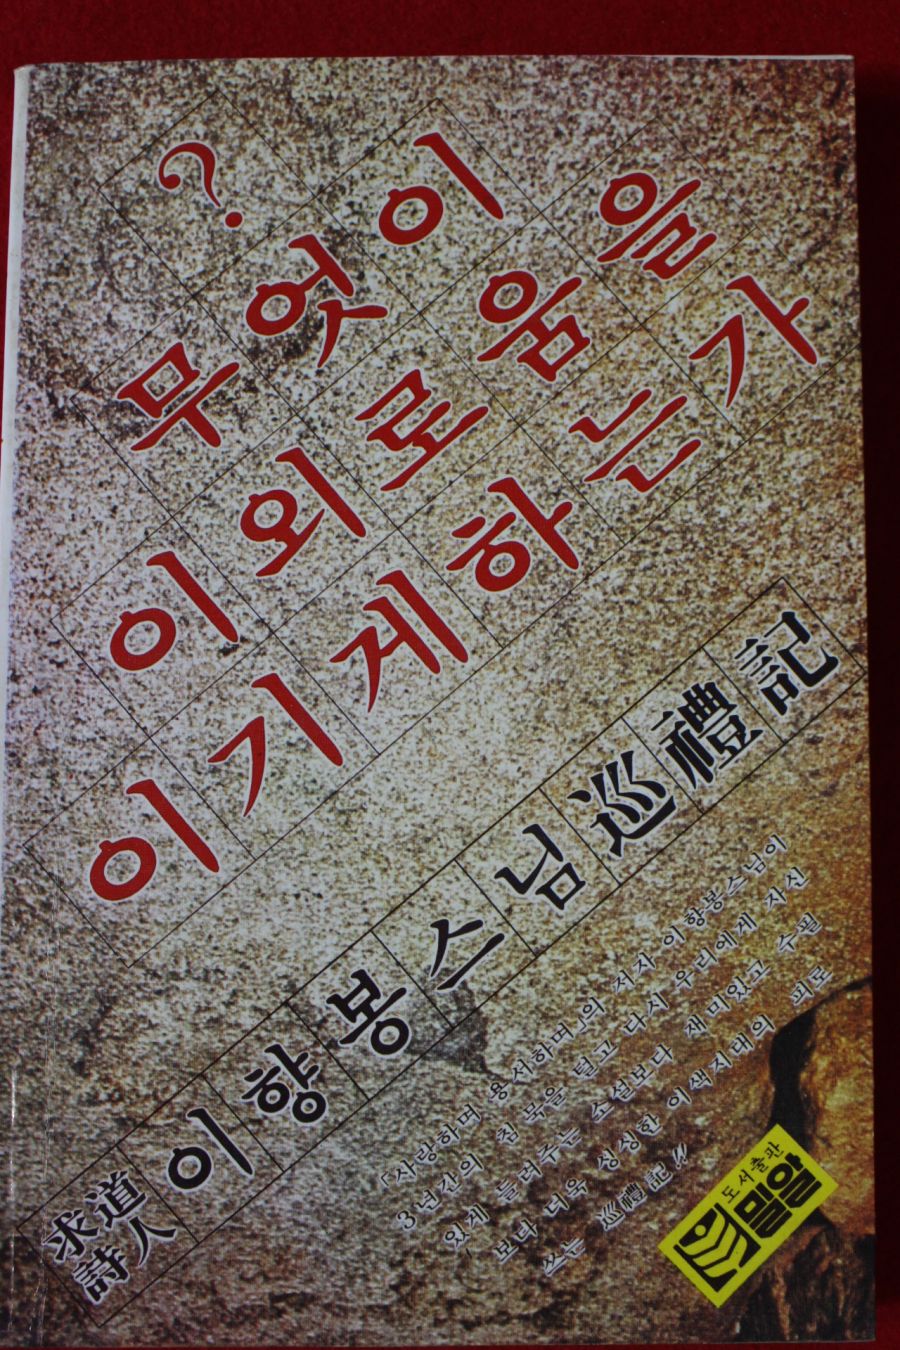 ?
무엇이
이외로움을
이기게하는가
求道
詩人
이향봉스님巡禮記
「사랑하며 용서하며」의 저자 이향봉스님이
3년간의 침묵을 털고 다시 우리에게 자신
있게 들려주는 소설보다 재미있고 수필
보다 더욱 싱싱한 이색지대의 피로
쓰는 巡禮記!!
도서출판
밀알